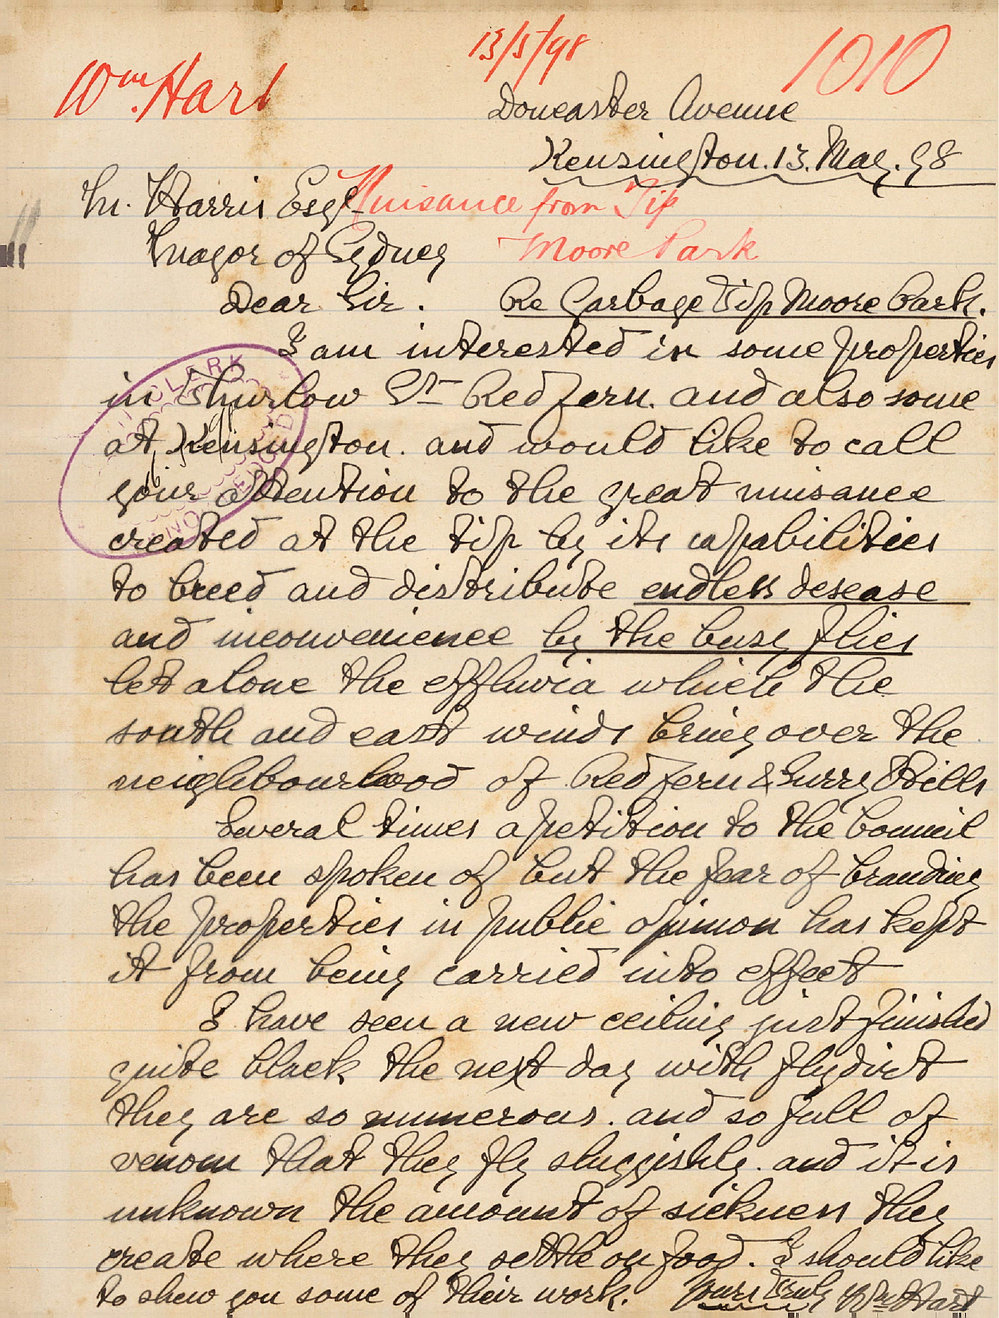 13/5/98
1010
Wm. Hart
Doncaster Avenue
Kensington. 13. May. 98
M. Harris Esqr
Nuisance from Tip
Mayor of Sydney
Moore Park
Dear Sir. Re Garbage Tip Moore Park.
I am interested in some properties
in Thurlow St Redfern. and also some
at Kensington. and would like to call
your attention to the great nuisance
created at the tip by its capabilities
to breed and distribute endless desease
and inconvenience by the busy flies
let alone the effluvia which the
south and east winds bring over the
neighbourhood of Redfern & Surry Hills
Several times a petition to the Council
has been spoken of but the fear of branding
the properties in public opinion has kept
it from being carried into effect
I have seen a new ceiling just finished
quite black the next day with flydirt
they are so numerous. and so full of
venom that they fly sluggishly. and it is
unknown the amount of sickness they
create where they settle on food. I should like
to shew you some of their work. Yours Truly Wm Hart
CLARK